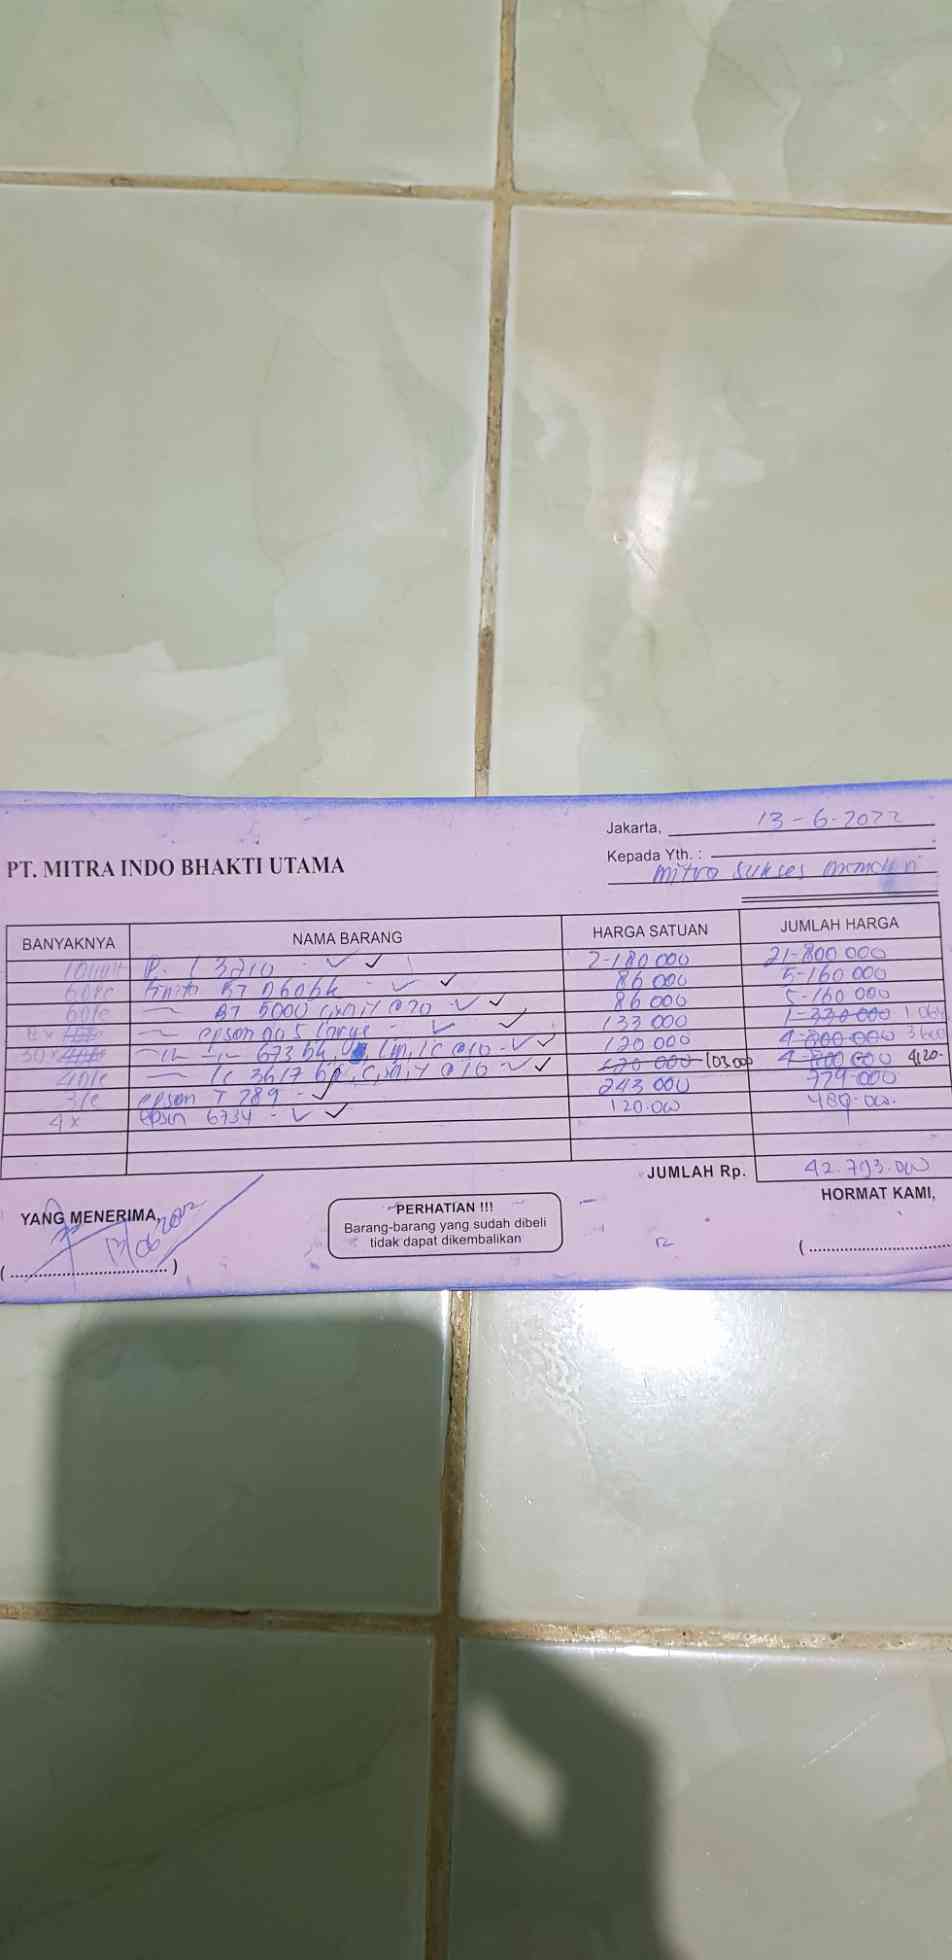 Jakarta, 13-6-2022
PT. MITRA INDO BHAKTI UTAMA
Kepada Yth. :
mitra sukses
BANYAKNYA NAMA BARANG HARGA SATUAN JUMLAH HARGA
10 unit P. L3210 2-180 000 21-800 000
60 pc Tinta BT D60bk 86 000 5-160 000
60 pc BT 5000 c,m,y @20 86 000 5-160 000
8x epson 005 133 000 1-330 000
30x 673 bk, lm, lc @10 120 000 4-800 000
40 pc bk, c, m, y @10 120 000 103.000 4-800 000 4.120.
3 pc epson T 789 243 000
4x epson 6734 120.000
JUMLAH Rp. 42.793.000
YANG MENERIMA,
PERHATIAN !!!
Barang-barang yang sudah dibeli
tidak dapat dikembalikan
HORMAT KAMI,